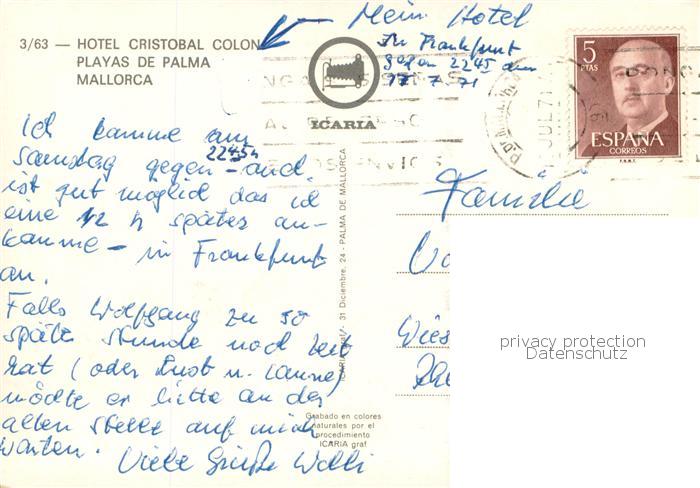 3/63 — HOTEL CRISTOBAL COLON
PLAYAS DE PALMA
MALLORCA
Mein Hotel
In Frankfurt
gegen 22 45 den
17. 7. 71
ICARIA
5
PTAS
ESPAÑA
CORREOS
F.N.M.T.
JUL 71
Ich komme am
Samstag gegen 22 45 h and.
ist gut möglich das ich
eine 1/2 h später an-
komme – in Frankfurt
an.
Falls Wolfgang zu so
später Stunde noch Zeit
hat (oder Lust u. Laune)
möchte er bitte an der
alten Stelle auf mich
warten.
Viele Grüße Wolli
Familie
Wies
ICARIA graf. - 31 Diciembre, 24 - PALMA DE MALLORCA
Grabado en colores
naturales por el
procedimiento
ICARIA graf
privacy protection
Datenschutz